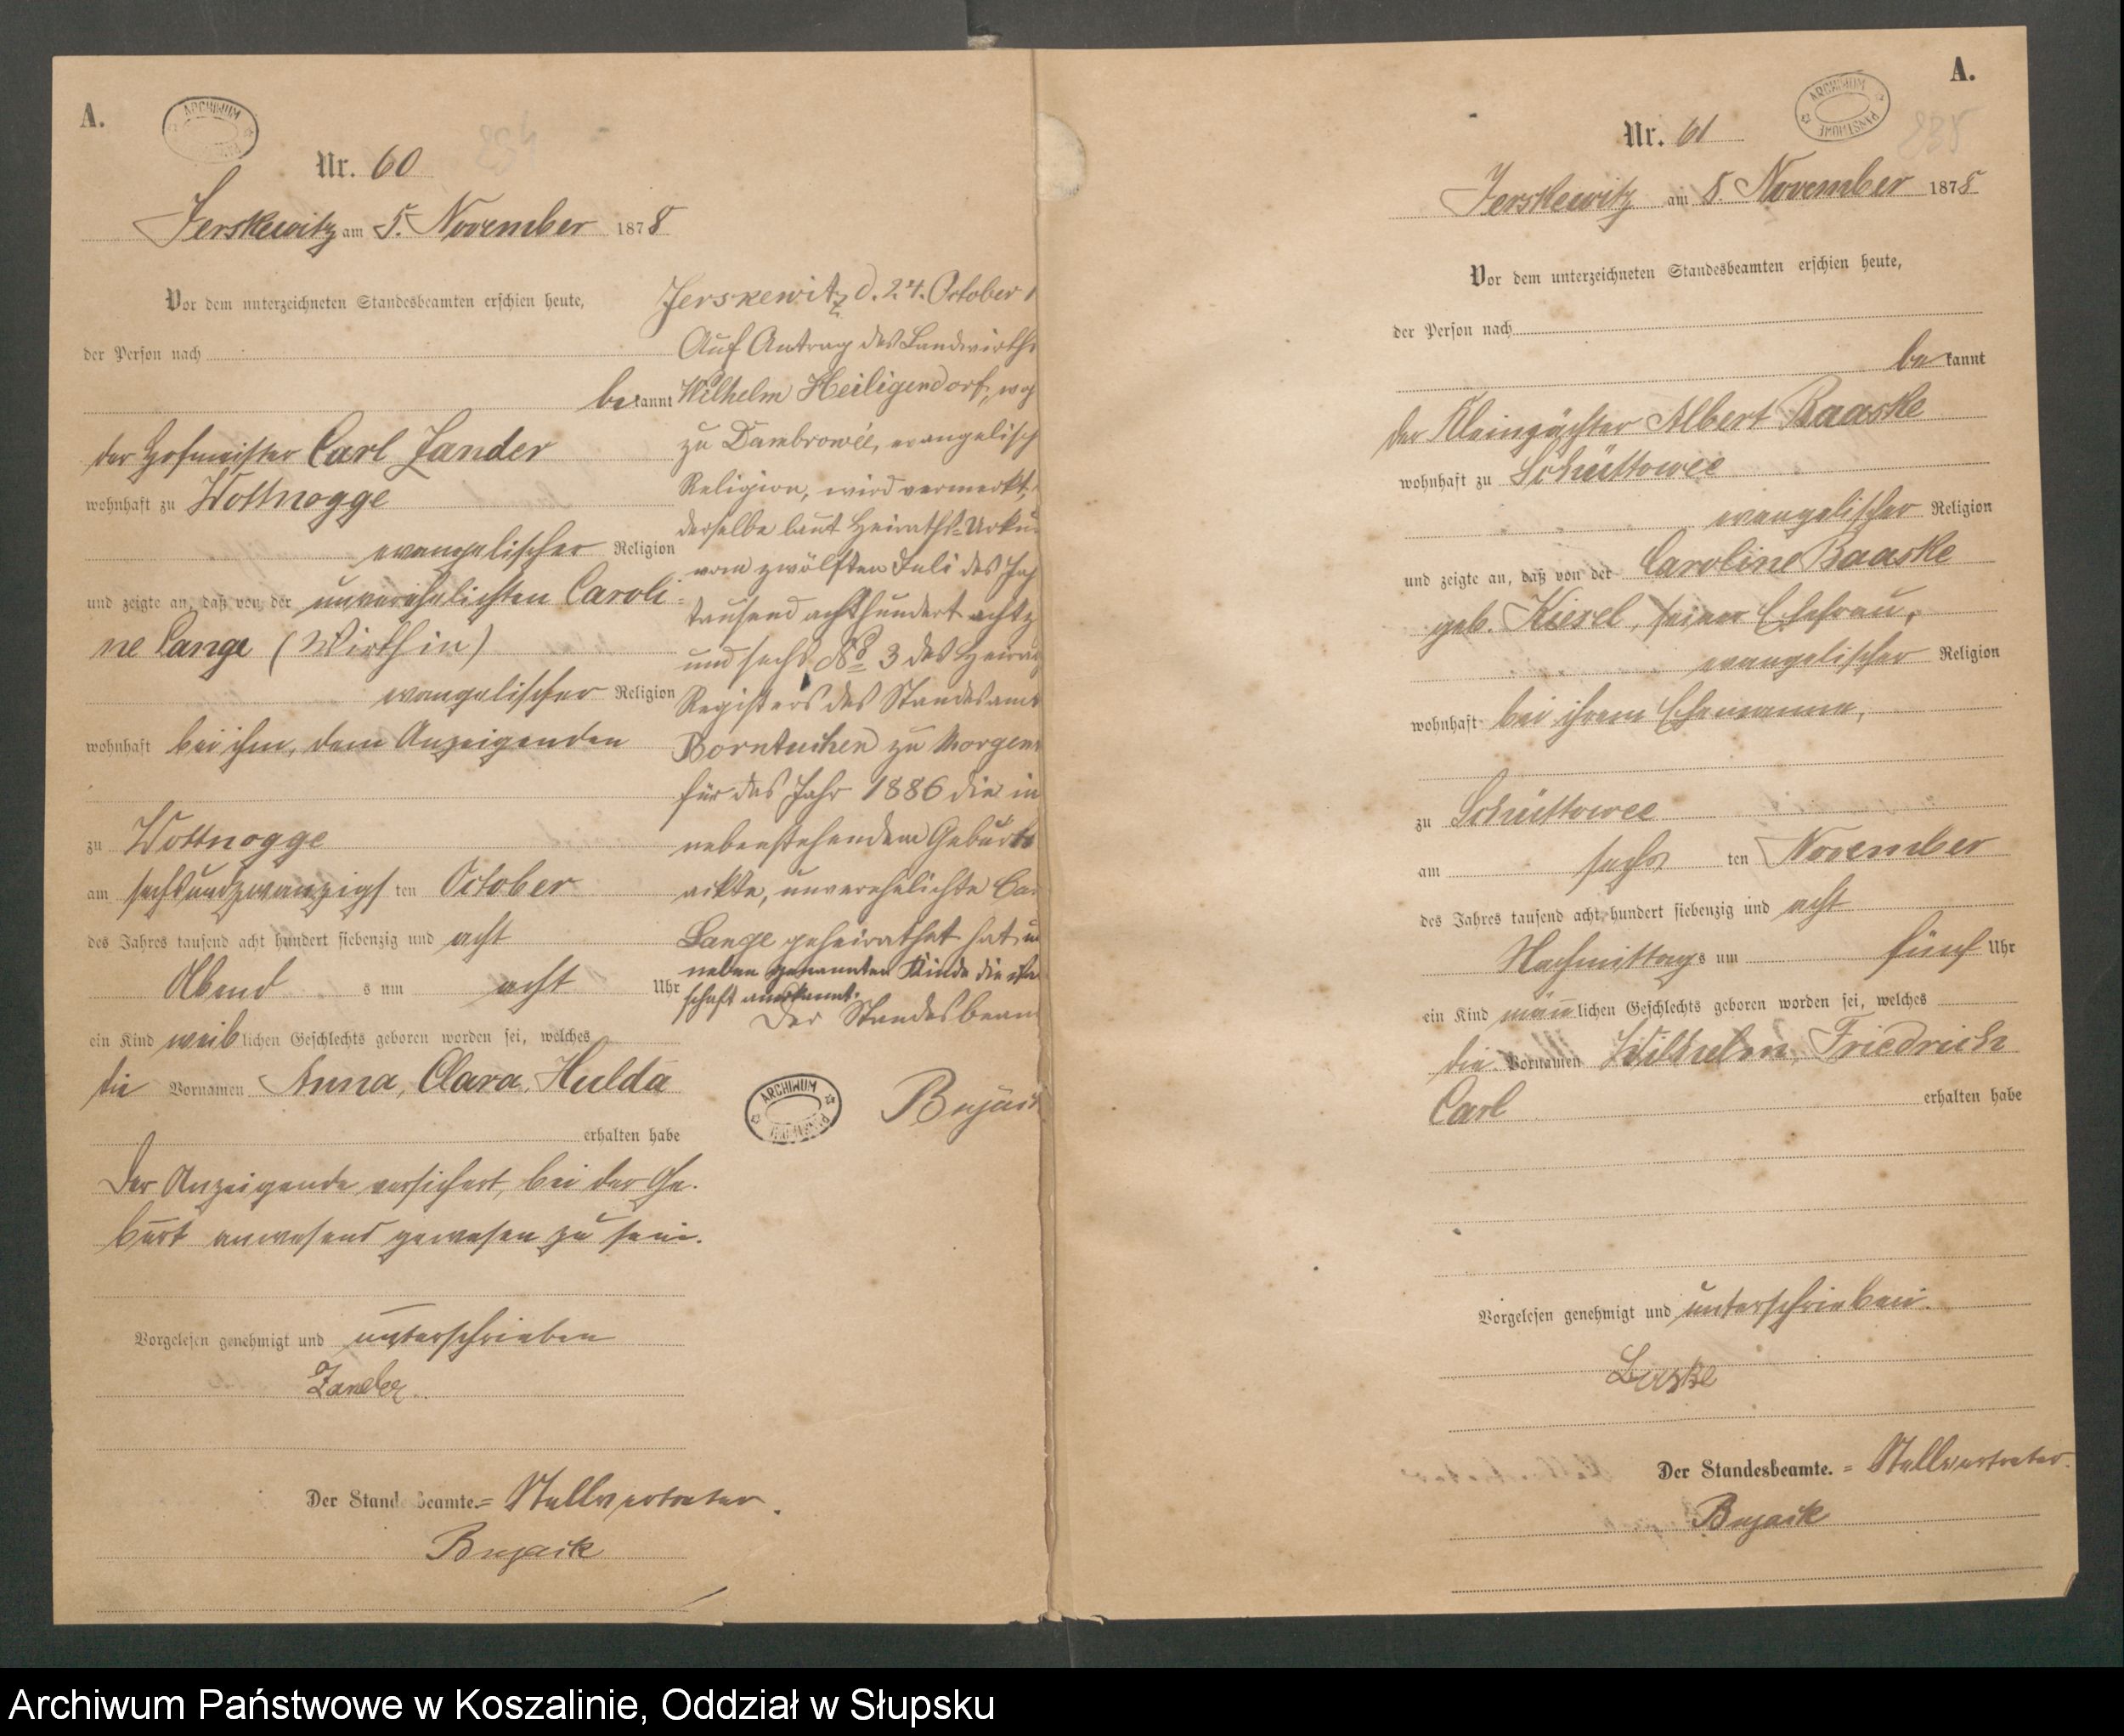 A.
ARCHIWUM
Nr. 60
Jerskewitz am 5. November 1878
Vor dem unterzeichneten Standesbeamten erschien heute,
der Person nach
bekannt
der Hofmeister Carl Zander
wohnhaft zu Wottnogge
evangelischer Religion
und zeigte an, daß von der unverehelichten Caroli=
ne Lange (Wirthin)
evangelischer Religion
wohnhaft bei ihm, dem Anzeigenden
zu Wottnogge
am sechsundzwanzigs ten October
des Jahres tausend acht hundert siebenzig und acht
Abend s um acht Uhr
ein Kind weiblichen Geschlechts geboren worden sei, welches
die Vornamen Anna, Clara, Hulda
erhalten habe
Der Anzeigende versichert, bei der Ge-
burt anwesend gewesen zu sein.
Vorgelesen genehmigt und unterschrieben
Zander
Der Standesbeamte.= Stellvertreter.
Bujack
Jerskewitz d. 24. October 1
Auf Antrag des Landwirths
Wilhelm Heiligendorf, wo
zu Dambrowée, evangelisch
Religion, wird vermerkt,
derselbe laut Heiraths-Urku
vom zwölften Juli des Jah
tausend achthundert achtz
und sechs No 3 des Heirath
Registers des Standesamts
Borntuchen zu Morgen
für das Jahr 1886 die in
nebenstehendem Geburts
ackte, unverehelichte Ca
Lange geheirathet hat u
neben genannten Kinde die
schaft anerkannt.
Der Standesbeam
ARCHIWUM
Bujack
A.
ARCHIWUM PAŃSTWOWE
Nr. 61
Jerskewitz am 8. November 1878
Vor dem unterzeichneten Standesbeamten erschien heute,
der Person nach
bekannt
der Kleinpächter Albert Baaske
wohnhaft zu Schüttowee
evangelischer Religion
und zeigte an, daß von der Caroline Baaske
geb. Kiesel, seiner Ehefrau,
evangelischer Religion
wohnhaft bei ihrem Ehemanne,
zu Schüttowee
am sechs ten November
des Jahres tausend acht hundert siebenzig und acht
Nachmittags um fünf Uhr
ein Kind männlichen Geschlechts geboren worden sei, welches
die Vornamen Wilhelm, Friedrich
Carl erhalten habe
Vorgelesen genehmigt und unterschrieben.
Baske
Der Standesbeamte. = Stellvertreter.
Bujack
Archiwum Państwowe w Koszalinie, Oddział w Słupsku